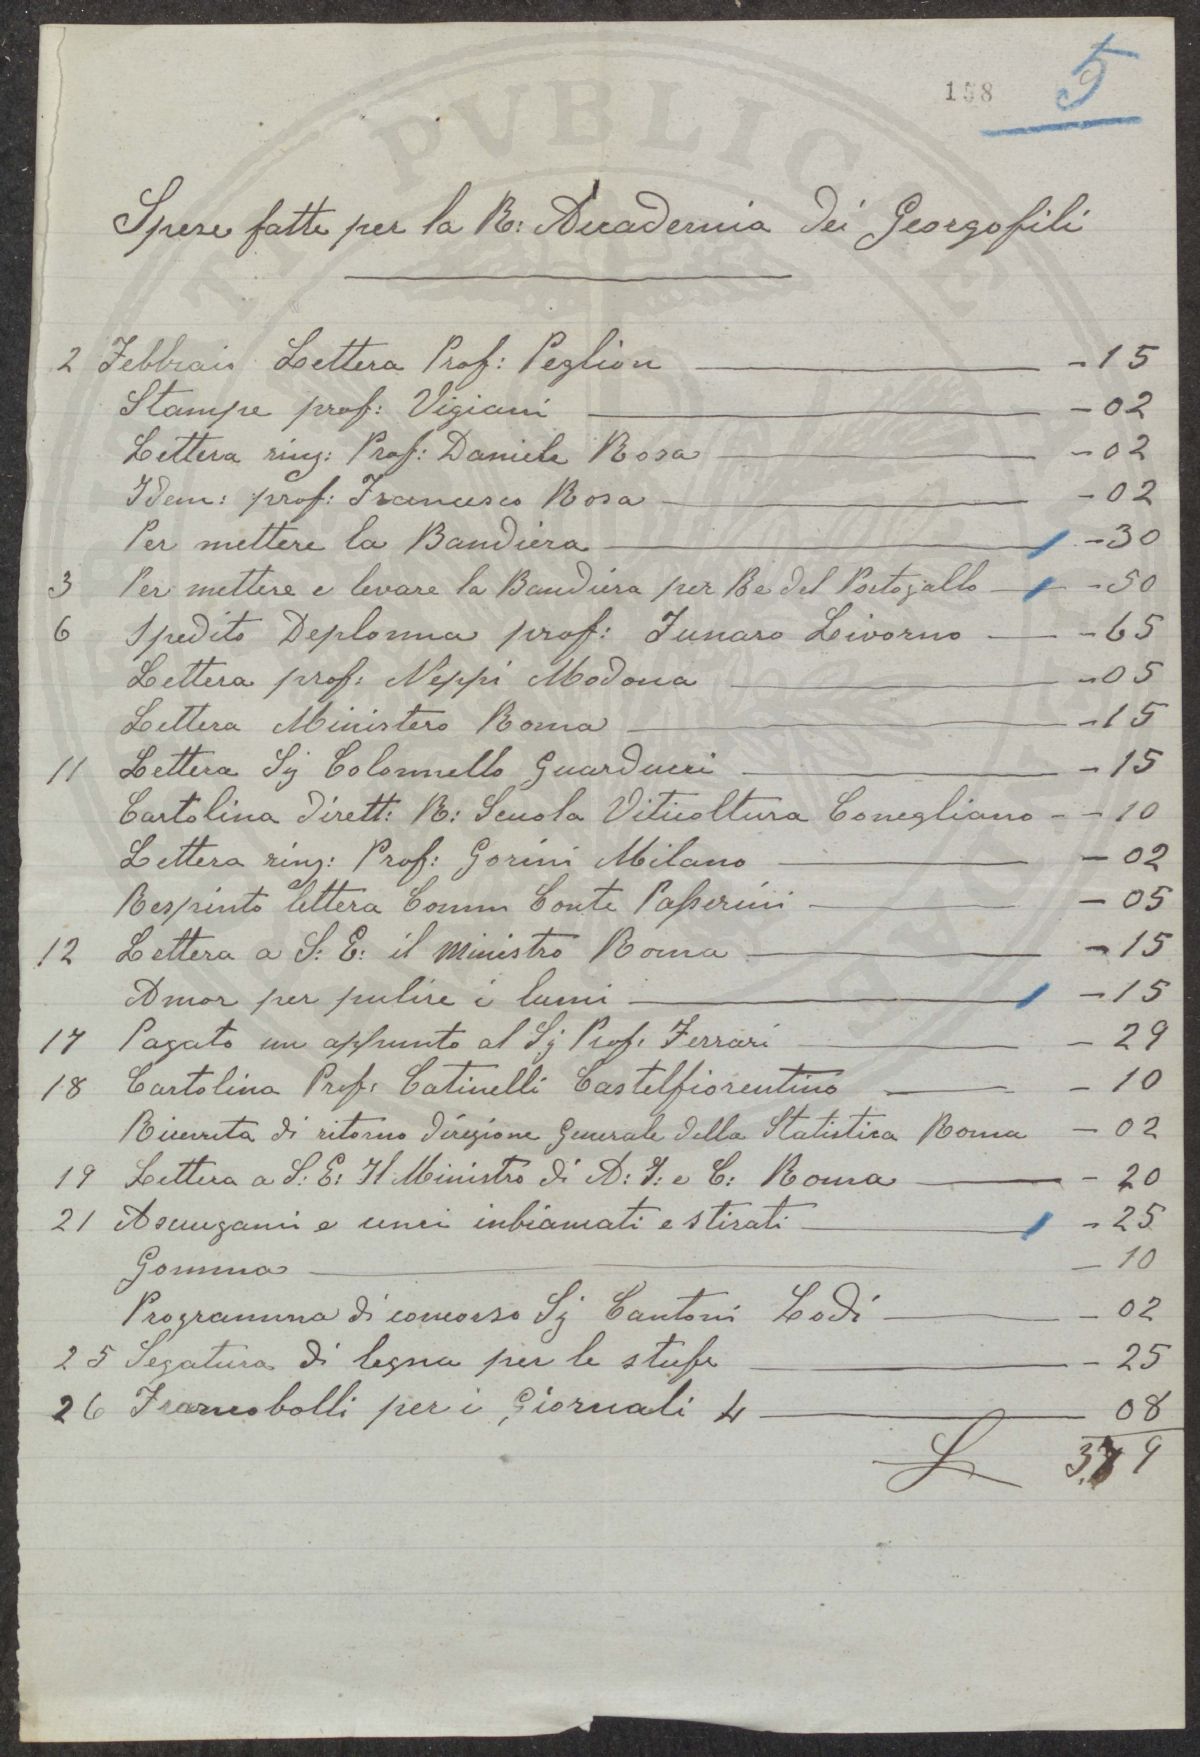 158 5
Spese fatte per la R: Accademia dei Georgofili
2 Febbraio Lettera Prof: Peglion - 15
Stampe prof: Vigiani - 02
Lettera ring: Prof: Daniele Rosa - 02
Idem: prof: Francesco Rosa - 02
Per mettere la Bandiera - 30
3 Per mettere e levare la Bandiera per Re del Portogallo - 50
6 Spedito Deploma prof: Funaro Livorno - 65
Lettera prof: Neppi Modona - 05
Lettera Ministero Roma - 15
11 Lettera Sg Colonnello Guarducci - 15
Cartolina Dirett: R: Scuola Viticoltura Conegliano - - 10
Lettera ring: Prof: Gorini Milano - 02
Respinto lettera Comm Conte Passerini - 05
12 Lettera a S: E: il Ministro Roma - 15
Amor per pulire i lumi - 15
17 Pagato un appunto al Sg Prof: Ferrari - 29
18 Cartolina Prof: Catinelli Castelfiorentino - 10
Ricevuta di ritorno Diregione Generale della Statistica Roma - 02
19 Lettera a S: E: Il Ministro di A: I: e C: Roma - 20
21 Asciugami e cenci inbiancati e stirati - 25
Gomma - 10
Programma di concorso Sg Cantoni Lodi - 02
25 Segatura di legna per le stufe - 25
26 Francobolli per i Giornali 4 08
L 3.79